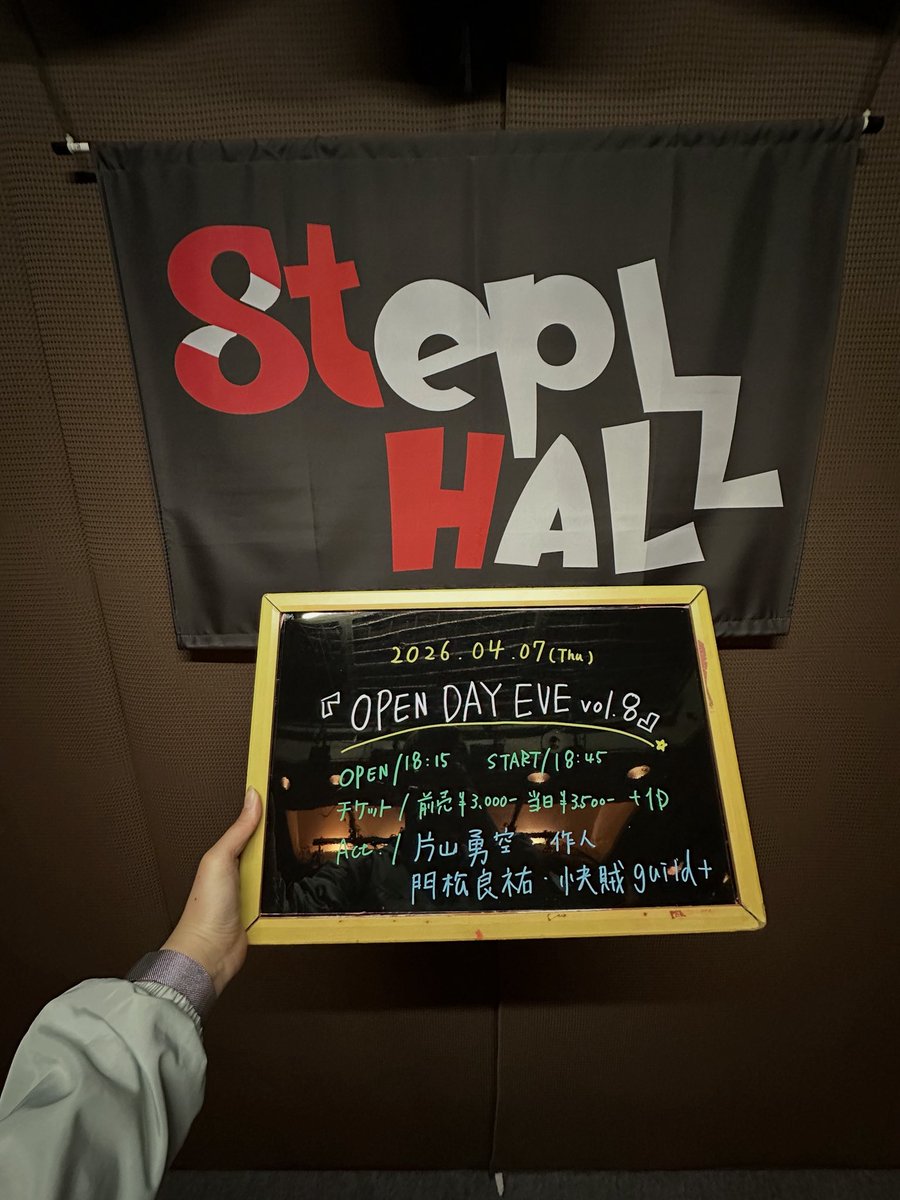 Step
HALL
2026.04.07(Thu)
『OPEN DAY EVE vol.8』
OPEN/18:15 START/18:45
チケット/前売¥3.000- 当日¥3.500- +1D
Act./片山勇空・作人
門松良祐・快賊guild+